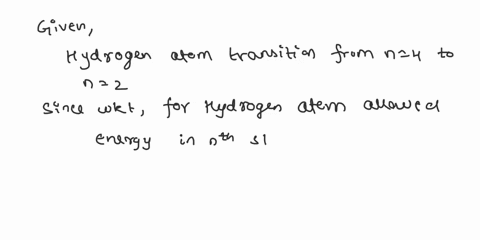 Given,
Hydrogen atom transition from n=4 to
n=2
Since wkt, for Hydrogen atom allowed
energy in nth st